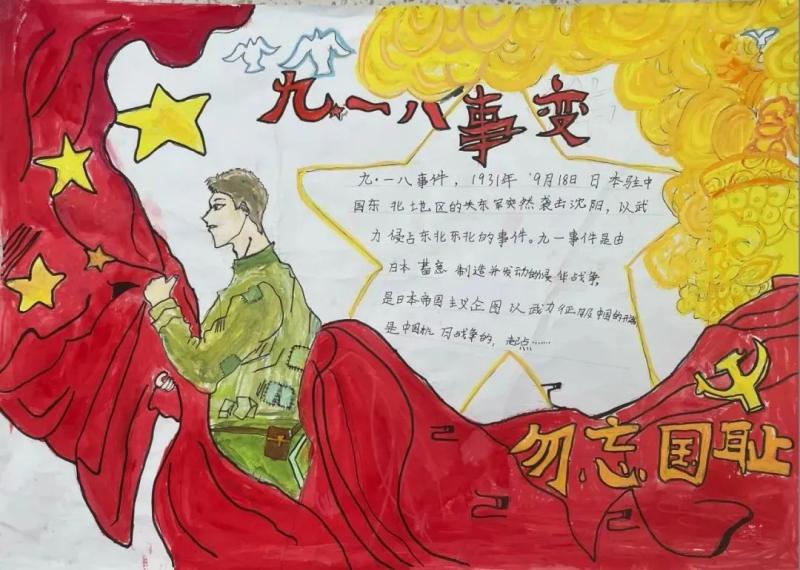 九·一八事变
九·一八事件，1931年 9月18日 日本驻中
国东北地区的关东军突然袭击沈阳，以武
力侵占东北东北的事件。九一事件是由
日本蓄意制造并发动的侵华战争，
是日本帝国主义企图以武力征服中国的开端
是中国抗日战争的，起点……
勿忘国耻